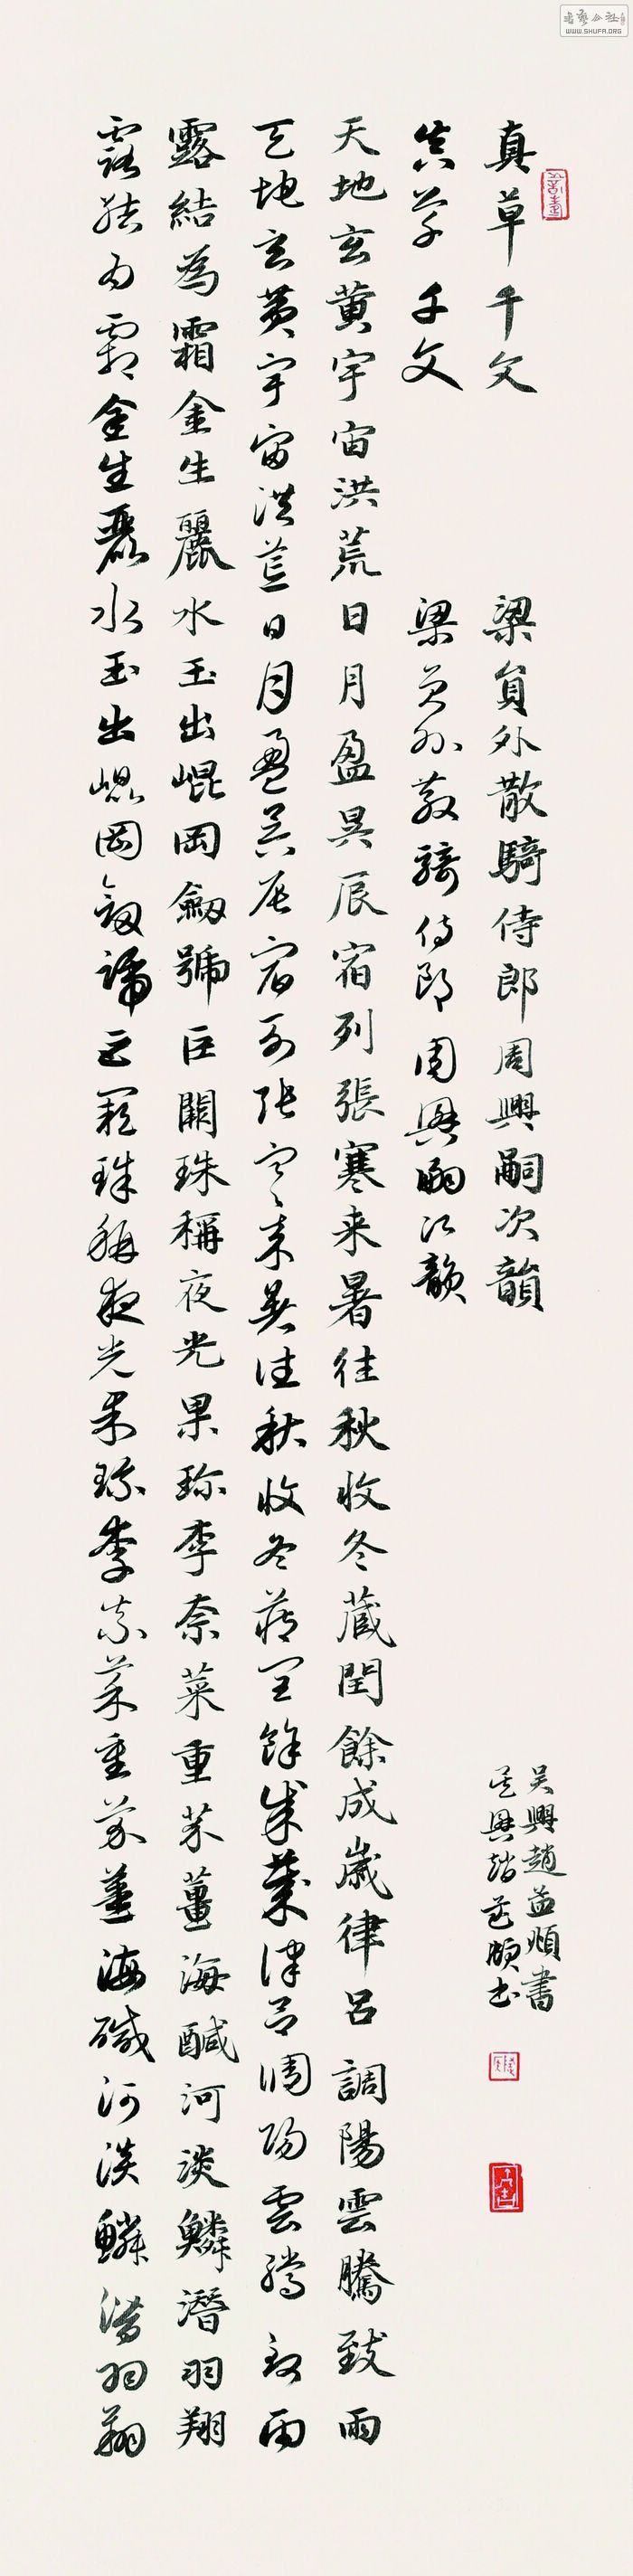 書藝公社
WWW.SHUFA.ORG
真草千文
梁員外散騎侍郎周興嗣次韻
吴興趙孟頫書
真草千文
梁員外散騎侍郎周興嗣次韻
吴興趙孟頫書
天地玄黄宇宙洪荒日月盈昃辰宿列張寒来暑往秋收冬蔵閏餘成歲律呂調陽雲騰致雨
天地玄黄宇宙洪荒日月盈昃辰宿列張寒来暑往秋收冬蔵閏餘成歲律呂調陽雲騰致雨
露結為霜金生麗水玉出崐岡劒號巨闕珠稱夜光果珎李柰菜重芥薑海鹹河淡鱗潜羽翔
露結為霜金生麗水玉出崐岡劒號巨闕珠稱夜光果珎李柰菜重芥薑海鹹河淡鱗潜羽翔